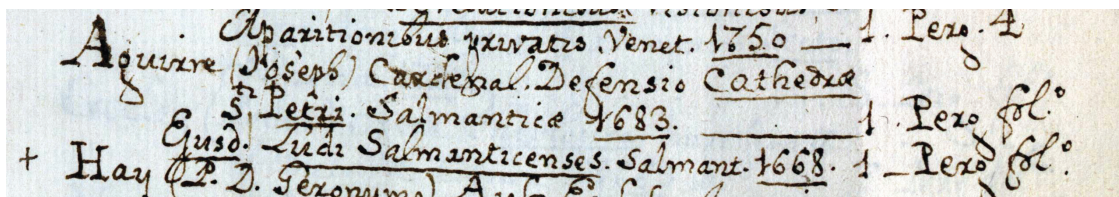 Aparitionibus privatis. Venet. 1750 — 1. Perg. 4
Aguirre (Joseph) Cardenal. Defensio Cathedræ
sti Petri. Salmanticæ 1683. — 1. Perg fol.º
Ejusd. Ludi Salmanticenses. Salmant. 1668. 1 — Perg fol.º
+ Hay (P. D. Geronymo)